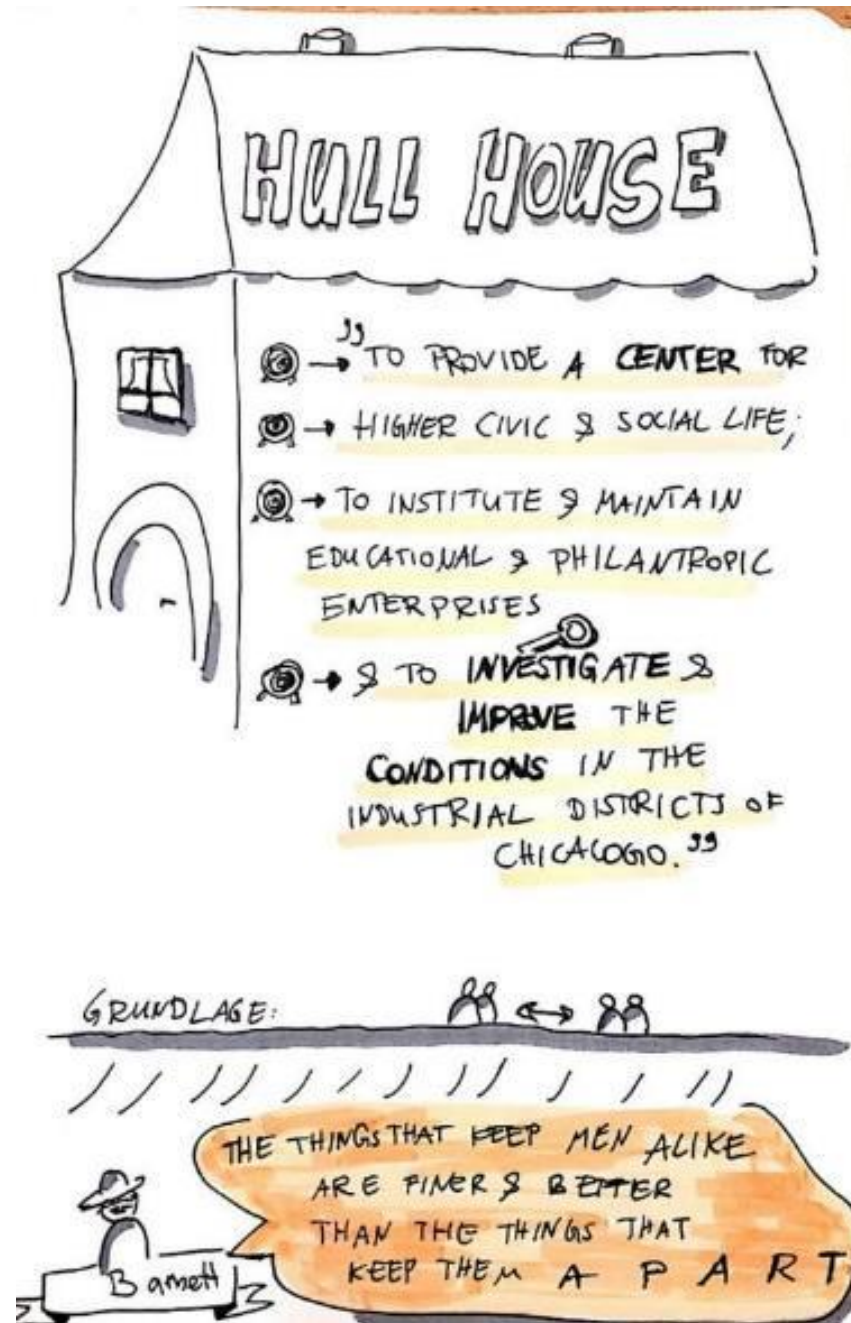 HULL HOUSE
„TO PROVIDE A CENTER FOR
HIGHER CIVIC & SOCIAL LIFE;
TO INSTITUTE & MAINTAIN
EDUCATIONAL & PHILANTROPIC
ENTERPRISES
& TO INVESTIGATE &
IMPROVE THE
CONDITIONS IN THE
INDUSTRIAL DISTRICTS OF
CHICALOGO.”
GRUNDLAGE:
THE THINGS THAT KEEP MEN ALIKE
ARE FINER & BETTER
THAN THE THINGS THAT
KEEP THEM A P A R T
Barnett